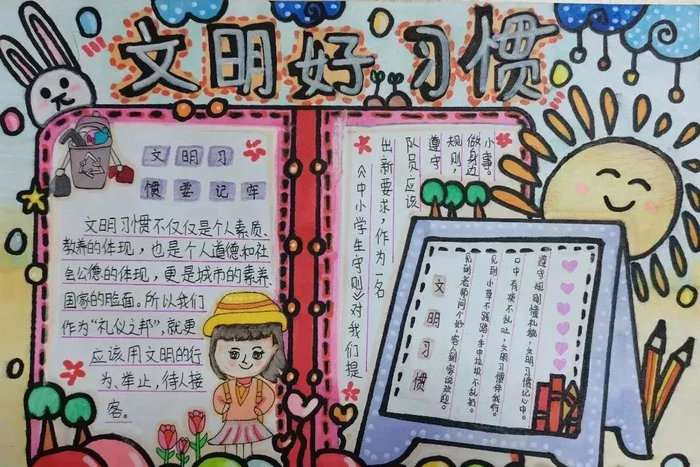 文明好习惯
文明习
惯要记牢
文明习惯不仅仅是个人素质、
教养的体现，也是个人道德和社
会公德的体现，更是城市的素养、
国家的脸面。所以我们
作为“礼仪之邦”，就更
应该用文明的行
为、举止，待人接
客。
《中小学生守则》对我们提
出新要求，作为一名
队员应该
遵守
规则，
做身边
小事。
文明习惯
见到老师问个好，客人到家说欢迎。
见到小草不践踏，手中垃圾不乱扔。
口中有痰不乱吐，文明习惯伴我行。
遵守规则懂礼貌，文明习惯记心中。